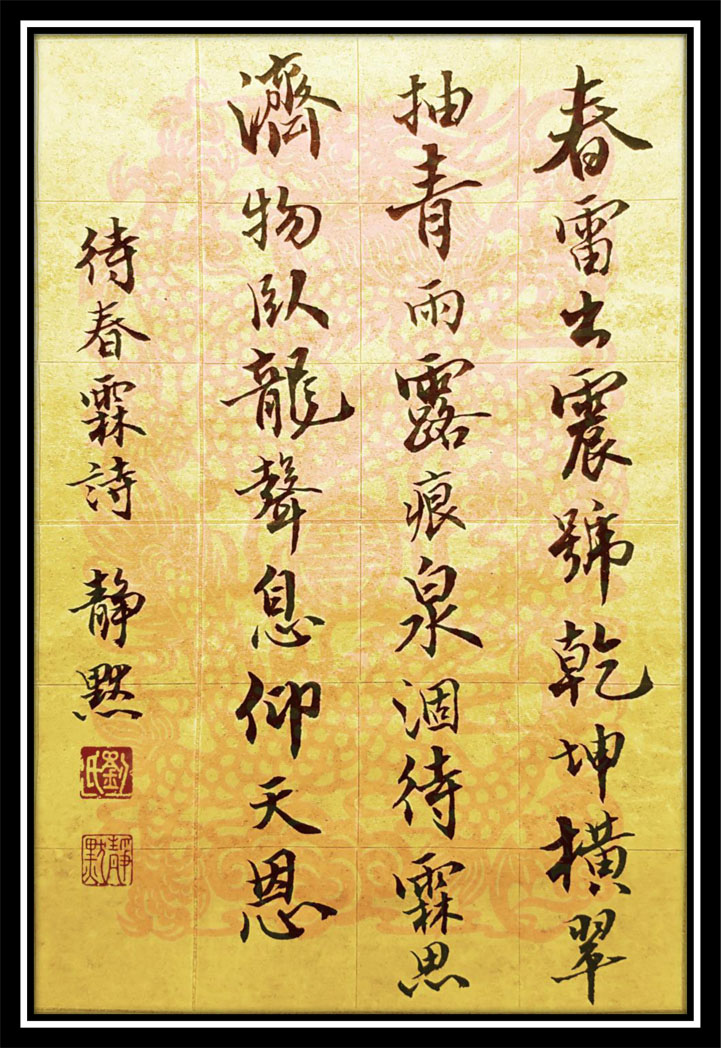 春雷出震號乾坤橫翠
抽青雨露痕泉涸待霖思
濟物臥龍聲息仰天恩
待春霖詩 靜默
劉氏
靜默